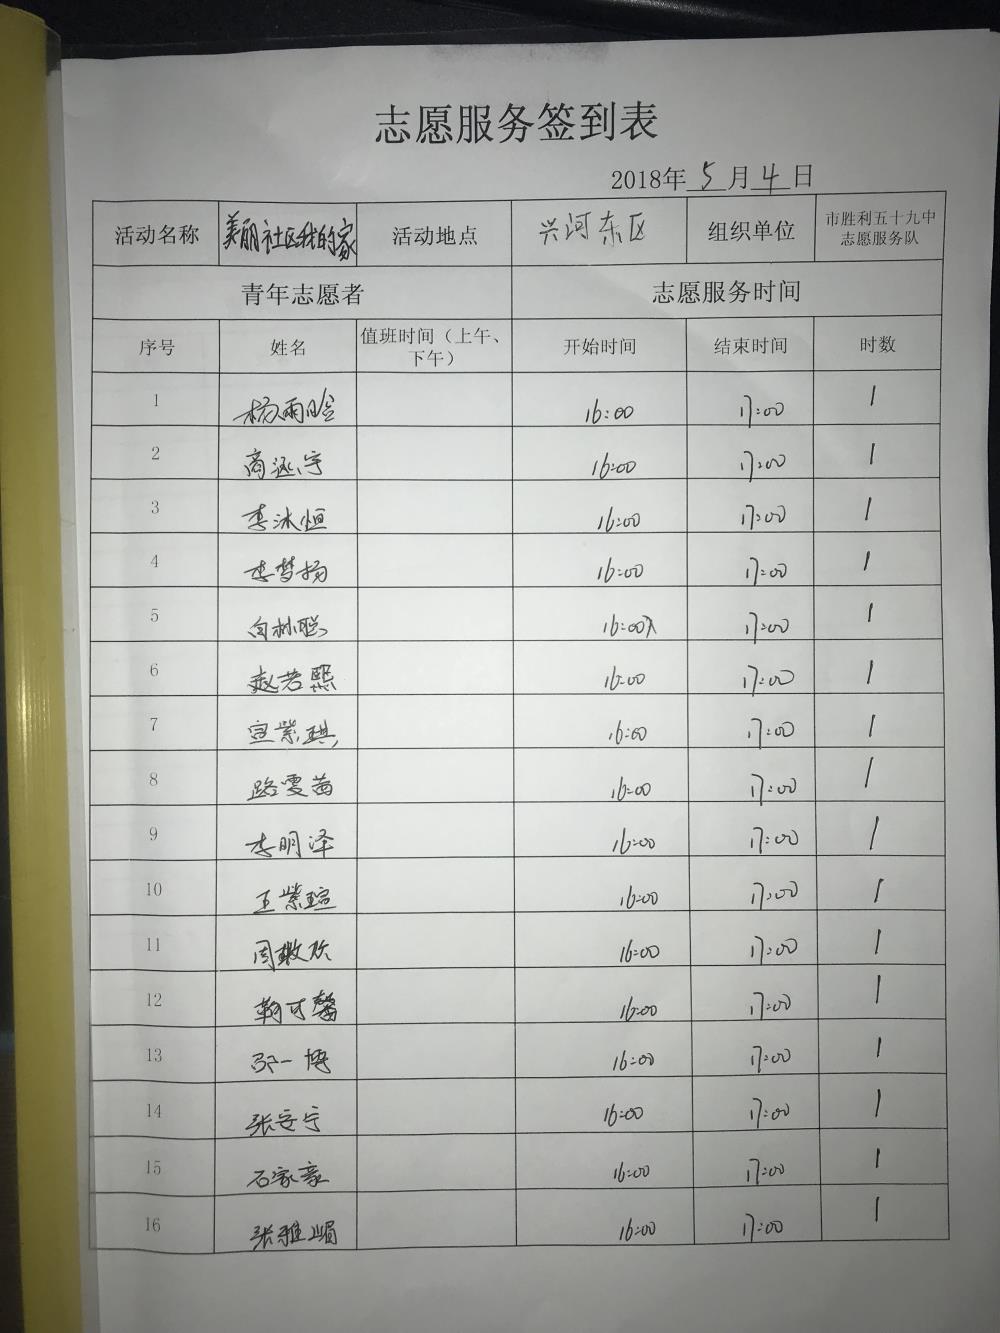 志愿服务签到表
2018年5月4日
活动名称 美丽社区我的家 活动地点 兴河东区 组织单位 市胜利五十九中
志愿服务队
青年志愿者 志愿服务时间
序号 姓名 值班时间（上午、
下午） 开始时间 结束时间 时数
1 杨雨晗 16:00 17:00 1
2 商涵宇 16:00 17:00 1
3 李沐恒 16:00 17:00 1
4 李梦杨 16:00 17:00 1
5 白林聪 16:00 17:00 1
6 赵若熙 16:00 17:00 1
7 宣紫琪 16:00 17:00 1
8 路雯茜 16:00 17:00 1
9 李明泽 16:00 17:00 1
10 王紫瑄 16:00 17:00 1
11 周敏欣 16:00 17:00 1
12 靳可馨 16:00 17:00 1
13 一博 16:00 17:00 1
14 张安宁 16:00 17:00 1
15 石家豪 16:00 17:00 1
16 张雅娟 16:00 17:00 1